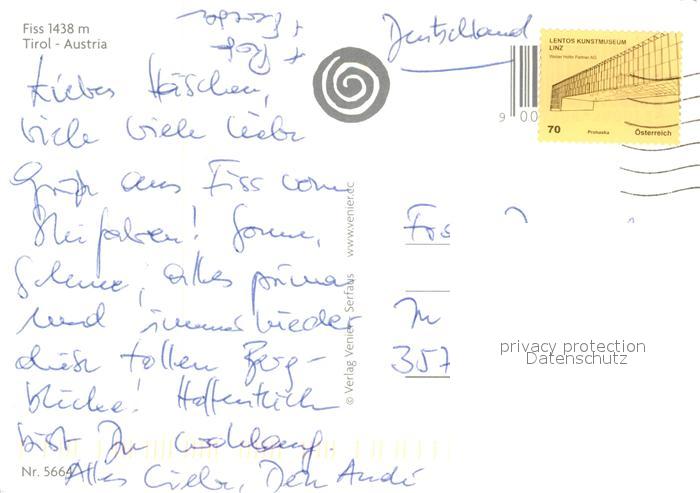 Fiss 1438 m
Tirol - Austria
Deutschland
LENTOS KUNSTMUSEUM
LINZ
Weber Hofer Partner AG
70 Prohaska Österreich
9 00
Liebes Häschen,
viele viele liebe
Grüße aus Fiss vom
Skifahren! Sonne,
Schnee, alles prima
und immer wieder
diese tollen Berg-
blicke! Hoffentlich
bist Du wohlauf.
Alles Liebe, Dein André
+ Rolf
Nr. 5664
© Verlag Venier - Serfaus www.venier.cc
357
privacy protection
Datenschutz